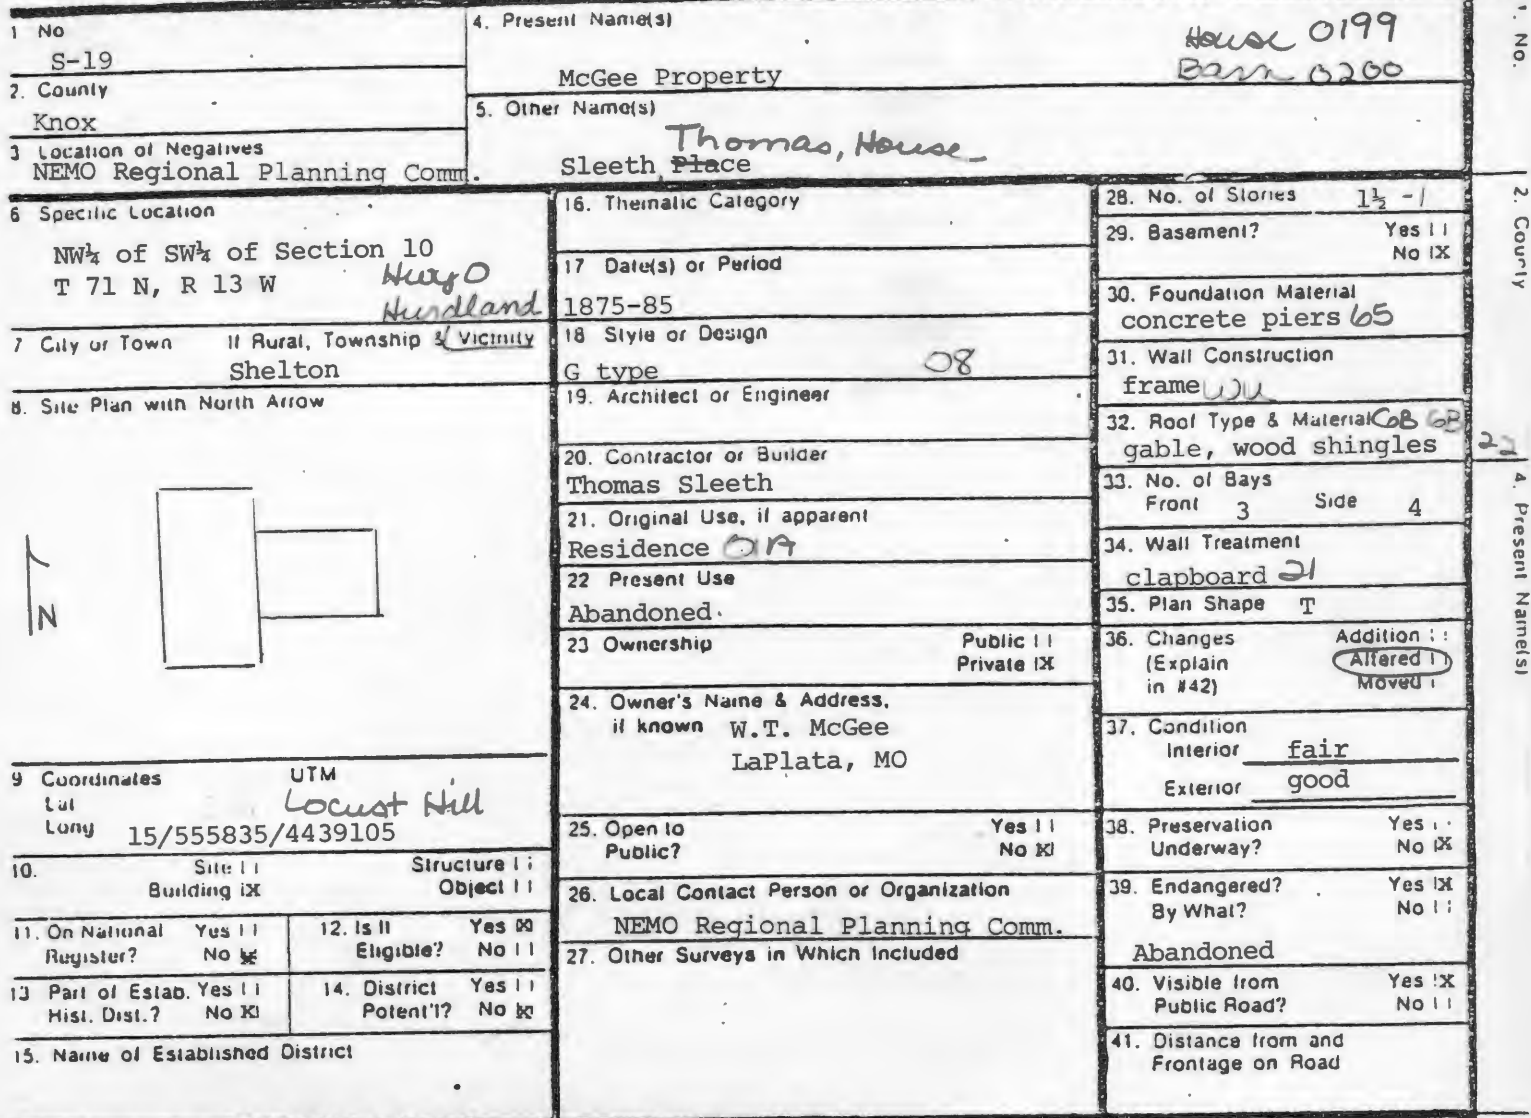 1 No
S-19
2. County
Knox
3 Location of Negatives
NEMO Regional Planning Comm.
4. Present Name(s)
House 0199
Barn 0200
McGee Property
5. Other Name(s)
Thomas, House
Sleeth Place
6 Specific Location
NW¼ of SW¼ of Section 10
T 71 N, R 13 W
Hurdland
7 City or Town If Rural, Township & Vicinity
Shelton
8. Site Plan with North Arrow
N
9 Coordinates UTM
Lat
Long
Locust Hill
15/555835/4439105
10. Site Structure
Building X Object
11. On National Register? Yes No X
12. Is It Eligible? Yes X No
13 Part of Estab. Hist. Dist.? Yes No X
14. District Potent'l? Yes No X
15. Name of Established District
16. Thematic Category
17 Date(s) or Period
1875-85
18 Style or Design
G type 08
19. Architect or Engineer
20. Contractor or Builder
Thomas Sleeth
21. Original Use, if apparent
Residence 01A
22 Present Use
Abandoned
23 Ownership Public
Private X
24. Owner's Name & Address,
if known W.T. McGee
LaPlata, MO
25. Open to Yes
Public? No X
26. Local Contact Person or Organization
NEMO Regional Planning Comm.
27. Other Surveys in Which Included
28. No. of Stories 1½ -1
29. Basement? Yes
No X
30. Foundation Material
concrete piers 65
31. Wall Construction
frame WU
32. Roof Type & Material GB
gable, wood shingles
33. No. of Bays
Front 3 Side 4
34. Wall Treatment
clapboard 21
35. Plan Shape T
36. Changes Addition
(Explain Altered
in #42) Moved
37. Condition
Interior fair
Exterior good
38. Preservation Yes
Underway? No X
39. Endangered? Yes X
By What? No
Abandoned
40. Visible from Yes X
Public Road? No
41. Distance from and
Frontage on Road
1. No.
2. County
4. Present Name(s)